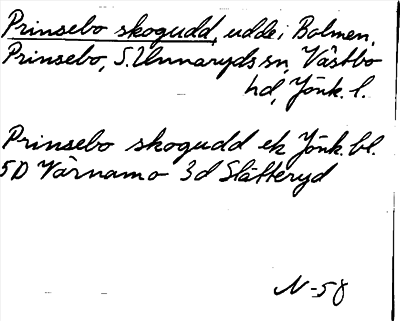 Prinsebo skogudd, udde i Bolmen,
Prinsebo, S. Unnaryds sn, Västbo
hd, Jönk. l.
Prinsebo skogudd ek Jönk. bl.
5D Värnamo 3d Slätteryd
N-58